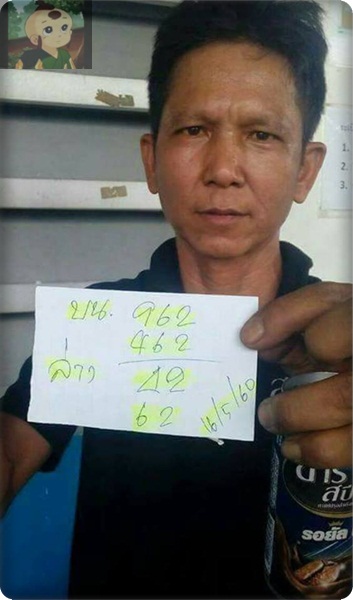 บน. 962
462
ล่าง 42
62
16/5/60
รอยัล
1.
2.
3.